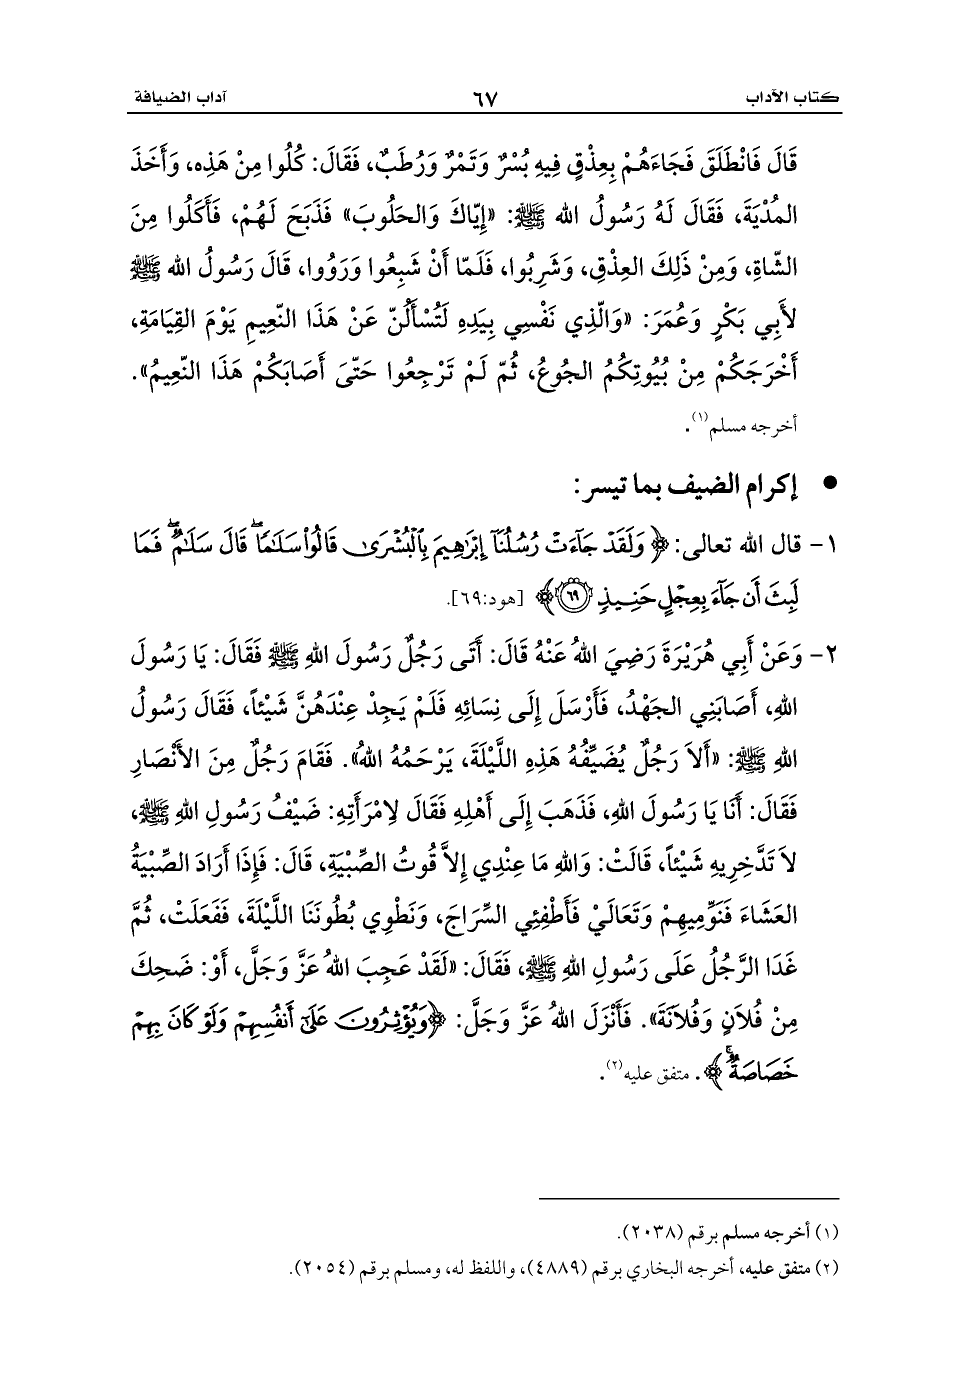 كتاب الآداب ٦٧ آداب الضيافة
قَالَ فَانْطَلَقَ فَجَاءَهُمْ بِعِذْقٍ فِيهِ بُسْرٌ وَتَمْرٌ وَرُطَبٌ، فَقَالَ: كُلُوا مِنْ هَذِه، وَأَخَذَ
المُدْيَةَ، فَقَالَ لَهُ رَسُولُ الله ﷺ: «إيّاكَ وَالحَلُوبَ» فَذَبَحَ لَهُمْ، فَأَكَلُوا مِنَ
الشّاةِ، وَمِنْ ذَلِكَ العِذْقِ، وَشَرِبُوا، فَلَمّا أَنْ شَبِعُوا وَرَوُوا، قَالَ رَسُولُ الله ﷺ
لأَبِي بَكْرٍ وَعُمَرَ: «وَالّذِي نَفْسِي بِيَدِهِ لَتُسْأَلُنّ عَنْ هَذَا النّعِيمِ يَوْمَ القِيَامَةِ،
أَخْرَجَكُمْ مِنْ بُيُوتِكُمُ الجُوعُ، ثُمّ لَمْ تَرْجِعُوا حَتّىَ أَصَابَكُمْ هَذَا النّعِيمُ».
أخرجه مسلم(١).
● إكرام الضيف بما تيسر:
١- قال الله تعالى: ﴿وَلَقَدْ جَآءَتْ رُسُلُنَآ إِبْرَٰهِيمَ بِٱلْبُشْرَىٰ قَالُوا۟ سَلَٰمًاۖ قَالَ سَلَٰمٌۖ فَمَا
لَبِثَ أَن جَآءَ بِعِجْلٍ حَنِيذٍ ٦٩﴾ [هود:٦٩].
٢- وَعَنْ أَبِي هُرَيْرَةَ رَضِيَ اللهُ عَنْهُ قَالَ: أَتَى رَجُلٌ رَسُولَ اللهِ ﷺ فَقَالَ: يَا رَسُولَ
اللهِ، أَصَابَنِي الجَهْدُ، فَأَرْسَلَ إِلَى نِسَائِهِ فَلَمْ يَجِدْ عِنْدَهُنَّ شَيْئاً، فَقَالَ رَسُولُ
اللهِ ﷺ: «أَلاَ رَجُلٌ يُضَيِّفُهُ هَذِهِ اللَّيْلَةَ، يَرْحَمُهُ اللهُ». فَقَامَ رَجُلٌ مِنَ الأَنْصَارِ
فَقَالَ: أَنَا يَا رَسُولَ اللهِ، فَذَهَبَ إِلَى أَهْلِهِ فَقَالَ لاِمْرَأَتِهِ: ضَيْفُ رَسُولِ اللهِ ﷺ،
لاَ تَدَّخِرِيهِ شَيْئاً، قَالَتْ: وَاللهِ مَا عِنْدِي إِلاَّ قُوتُ الصِّبْيَةِ، قَالَ: فَإِذَا أَرَادَ الصِّبْيَةُ
العَشَاءَ فَنَوِّمِيهِمْ وَتَعَالَيْ فَأَطْفِئِي السِّرَاجَ، وَنَطْوِي بُطُونَنَا اللَّيْلَةَ، فَفَعَلَتْ، ثُمَّ
غَدَا الرَّجُلُ عَلَى رَسُولِ اللهِ ﷺ، فَقَالَ: «لَقَدْ عَجِبَ اللهُ عَزَّ وَجَلَّ، أَوْ: ضَحِكَ
مِنْ فُلاَنٍ وَفُلاَنَةَ». فَأَنْزَلَ اللهُ عَزَّ وَجَلَّ: ﴿وَيُؤْثِرُونَ عَلَىٰٓ أَنفُسِهِمْ وَلَوْ كَانَ بِهِمْ
خَصَاصَةٌۚ﴾. متفق عليه(٢).
(١) أخرجه مسلم برقم (٢٠٣٨).
(٢) متفق عليه، أخرجه البخاري برقم (٤٨٨٩)، واللفظ له، ومسلم برقم (٢٠٥٤).